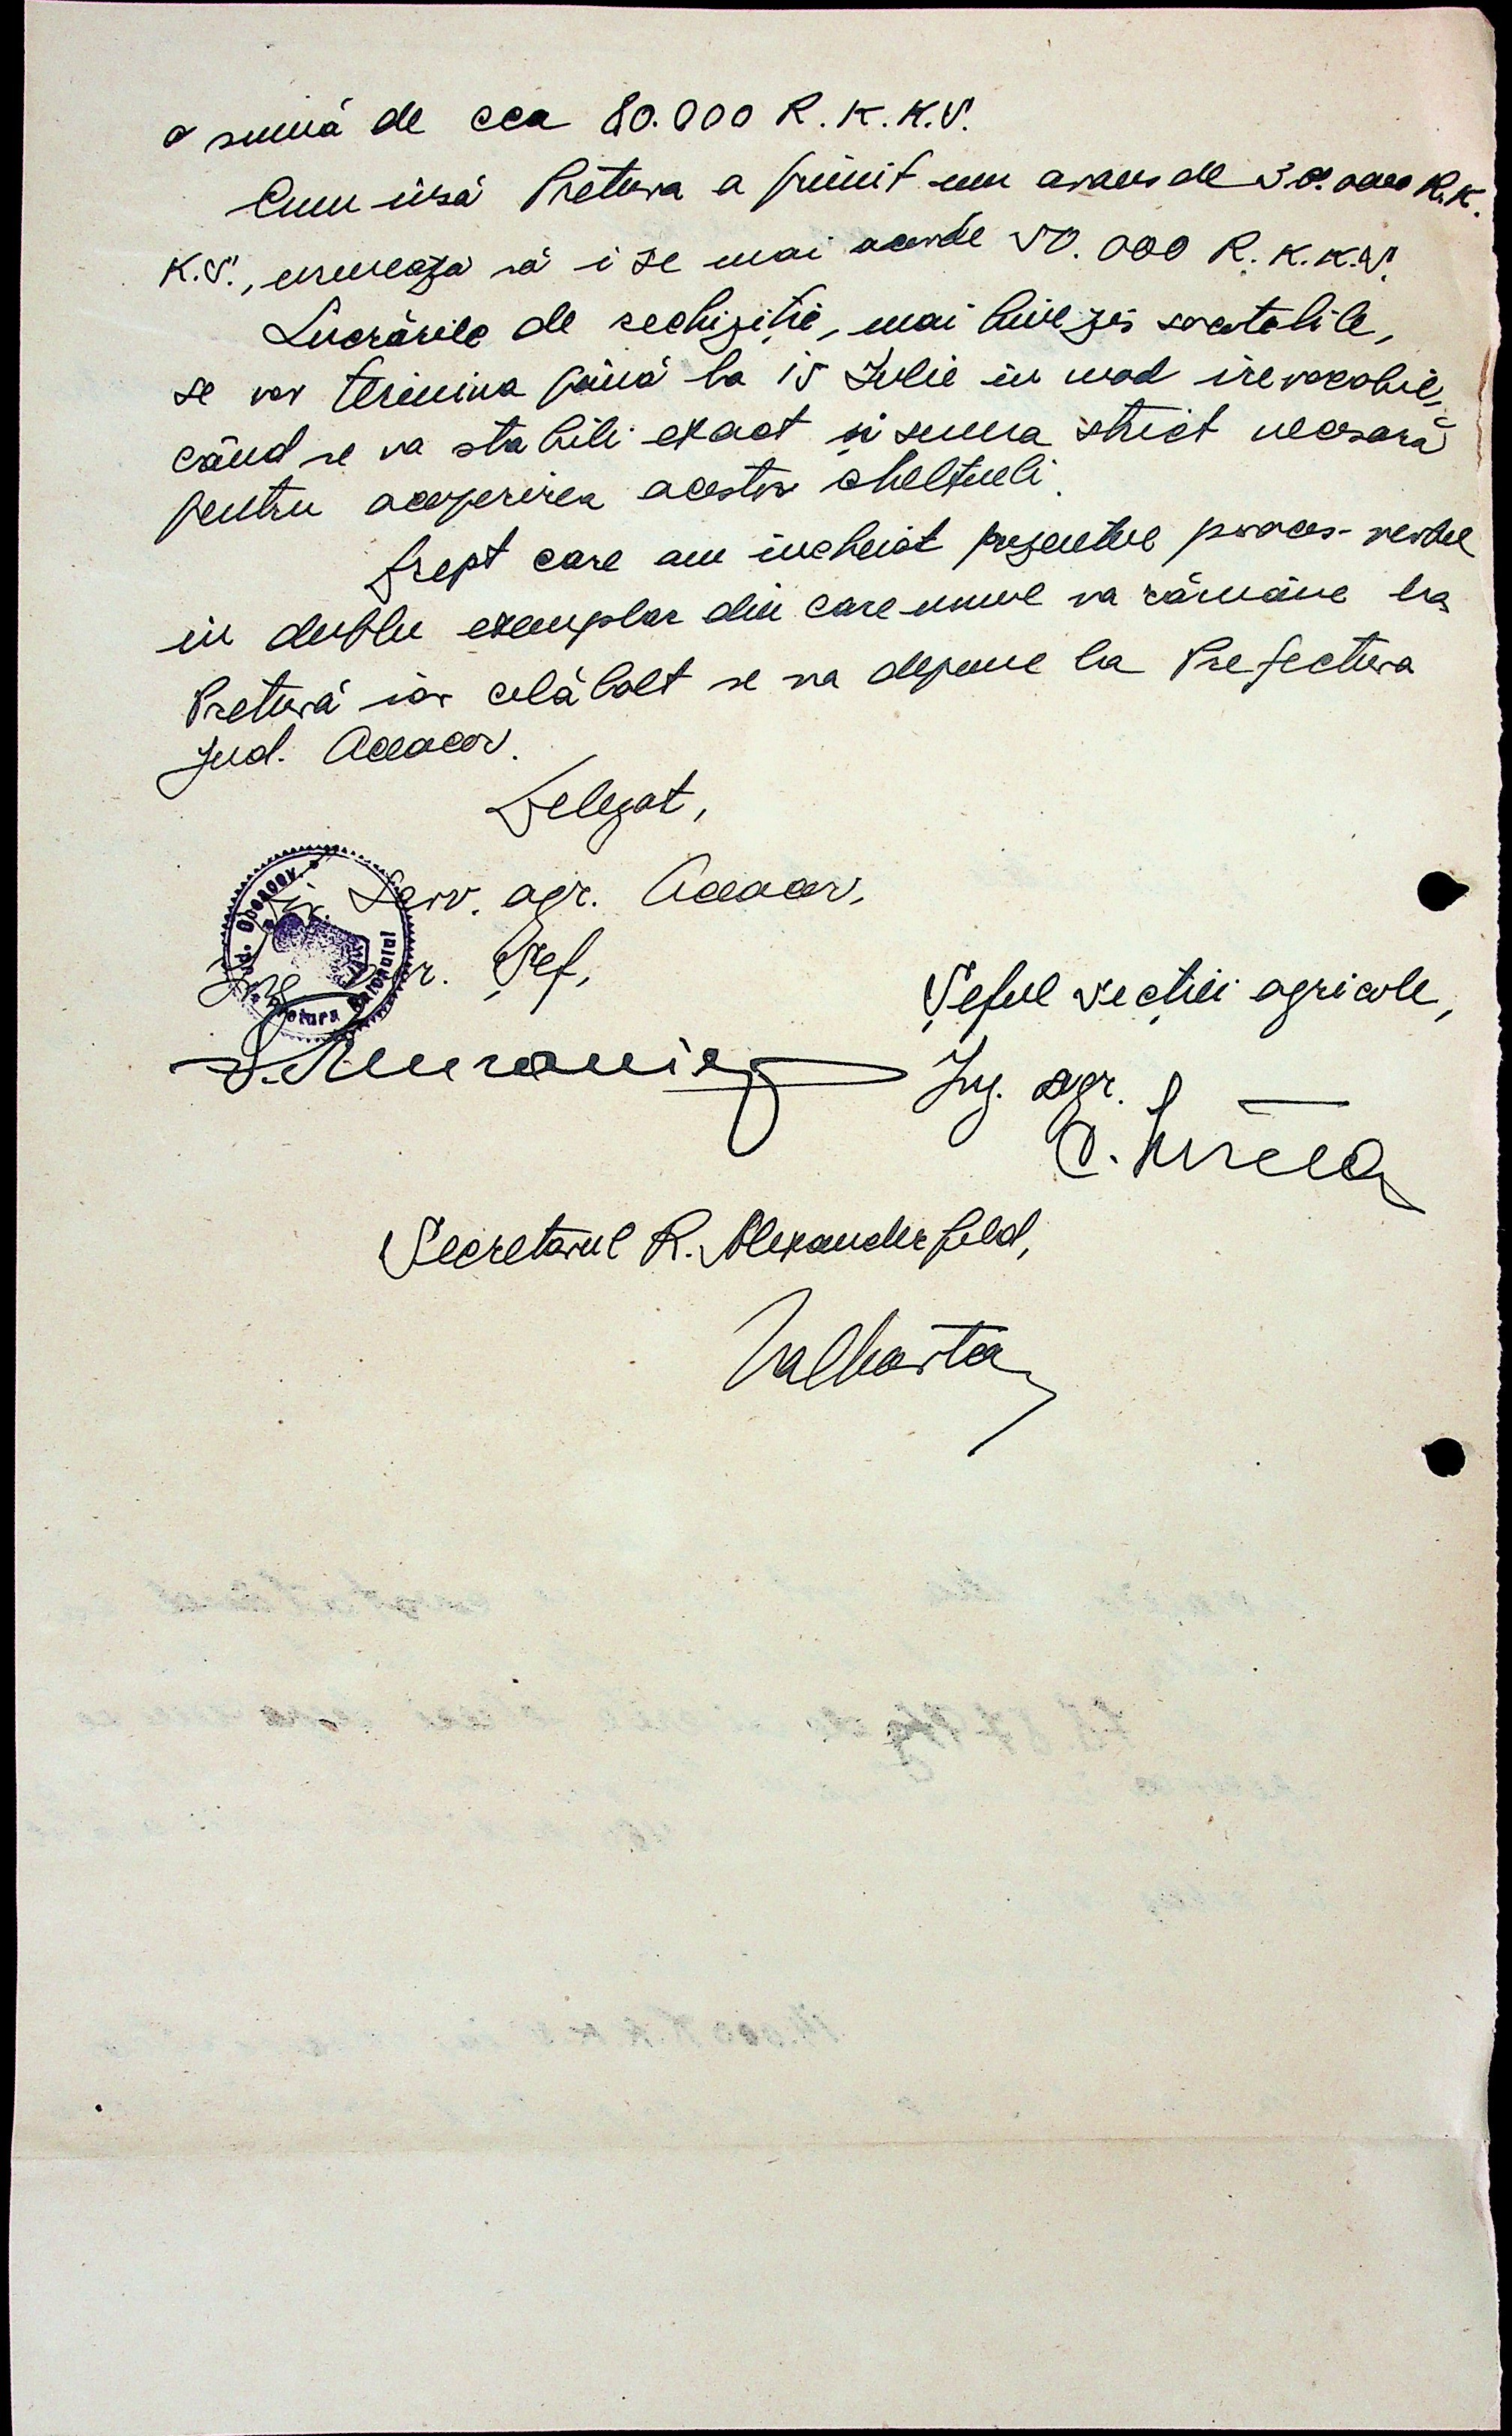 o sumă de cca 80.000 R.K.K.S.
Cum însă Pretura a primit un avans de 30.000 R.K.
K.S., urmează să i se mai acorde 50.000 R.K.K.S.
Lucrările de rechiziție, mai bine zis socotelile,
se vor termina până la 15 Iulie în mod irevocabil,
când se va stabili exact și suma strict necesară
pentru acoperirea acestor cheltueli.
Drept care am încheiat prezentul proces-verbal
in dublu exemplar din care unul va rămâne la
Pretură iar celălalt se va depune la Prefectura
Jud. Oceacov.
Delegat,
Dir. Serv. agr. Oceacov,
Ing. agr. Șef,
Șeful secției agricole,
Ing. agr.
Secretarul R. Alexanderfeld,